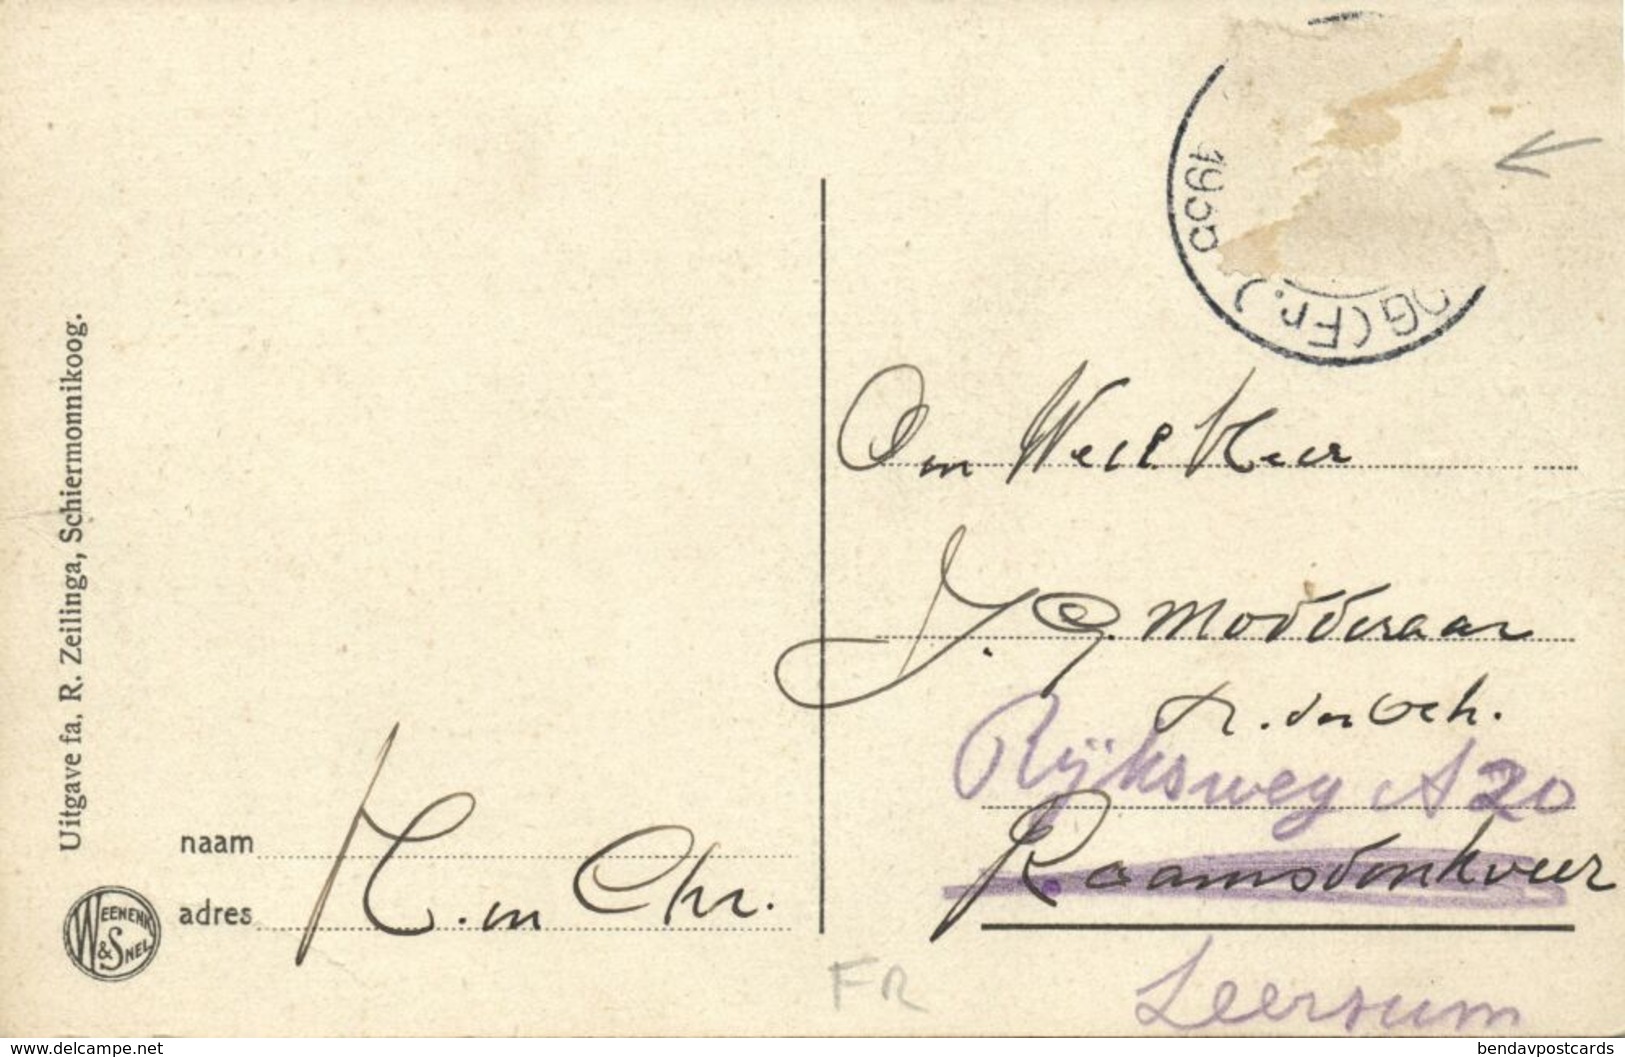 1955
OG (Fr.)
Uitgave fa. R. Zeilinga, Schiermonnikoog.
J. G. Modderaar
Rijksweg A 20
Raamsdonkveer
Leersum
naam
adres
K. en Chr.
WEENENK & SNEL
FR
www.delcampe.net
bendavpostcards